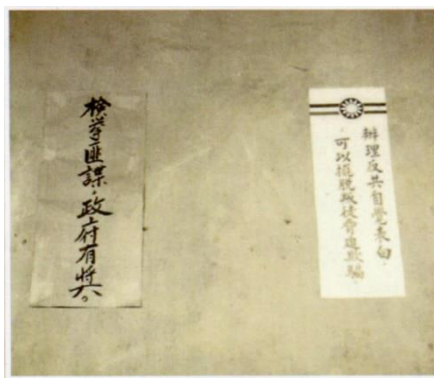 辦理反共自覺表白，
可以擺脫脅迫欺騙。
檢舉匪諜，政府有獎。